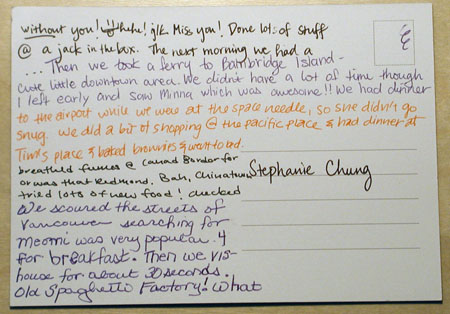 without you! hehe! jk. Miss you! Done lots of stuff
@ a jack in the box. The next morning we had a
...Then we took a ferry to Bainbridge Island-
cute little downtown area. We didn't have a lot of time though
I left early and saw Minna which was awesome!! We had dinner
to the airport while we were at the space needle, so she didn't go
snug. We did a bit of shopping @ the pacific place & had dinner at
Tim's place & baked brownies & went to bed.
breathed fumes @ Canad Bordor for
or was that Redmond. Bah, Chinatown
tried lots of new food! checked
Stephanie Chung
We scoured the streets of
Vancouver searching for
Meomi was very popular. 4
for breakfast. Then we vis-
house for about 30 seconds.
Old Spaghetti Factory! What